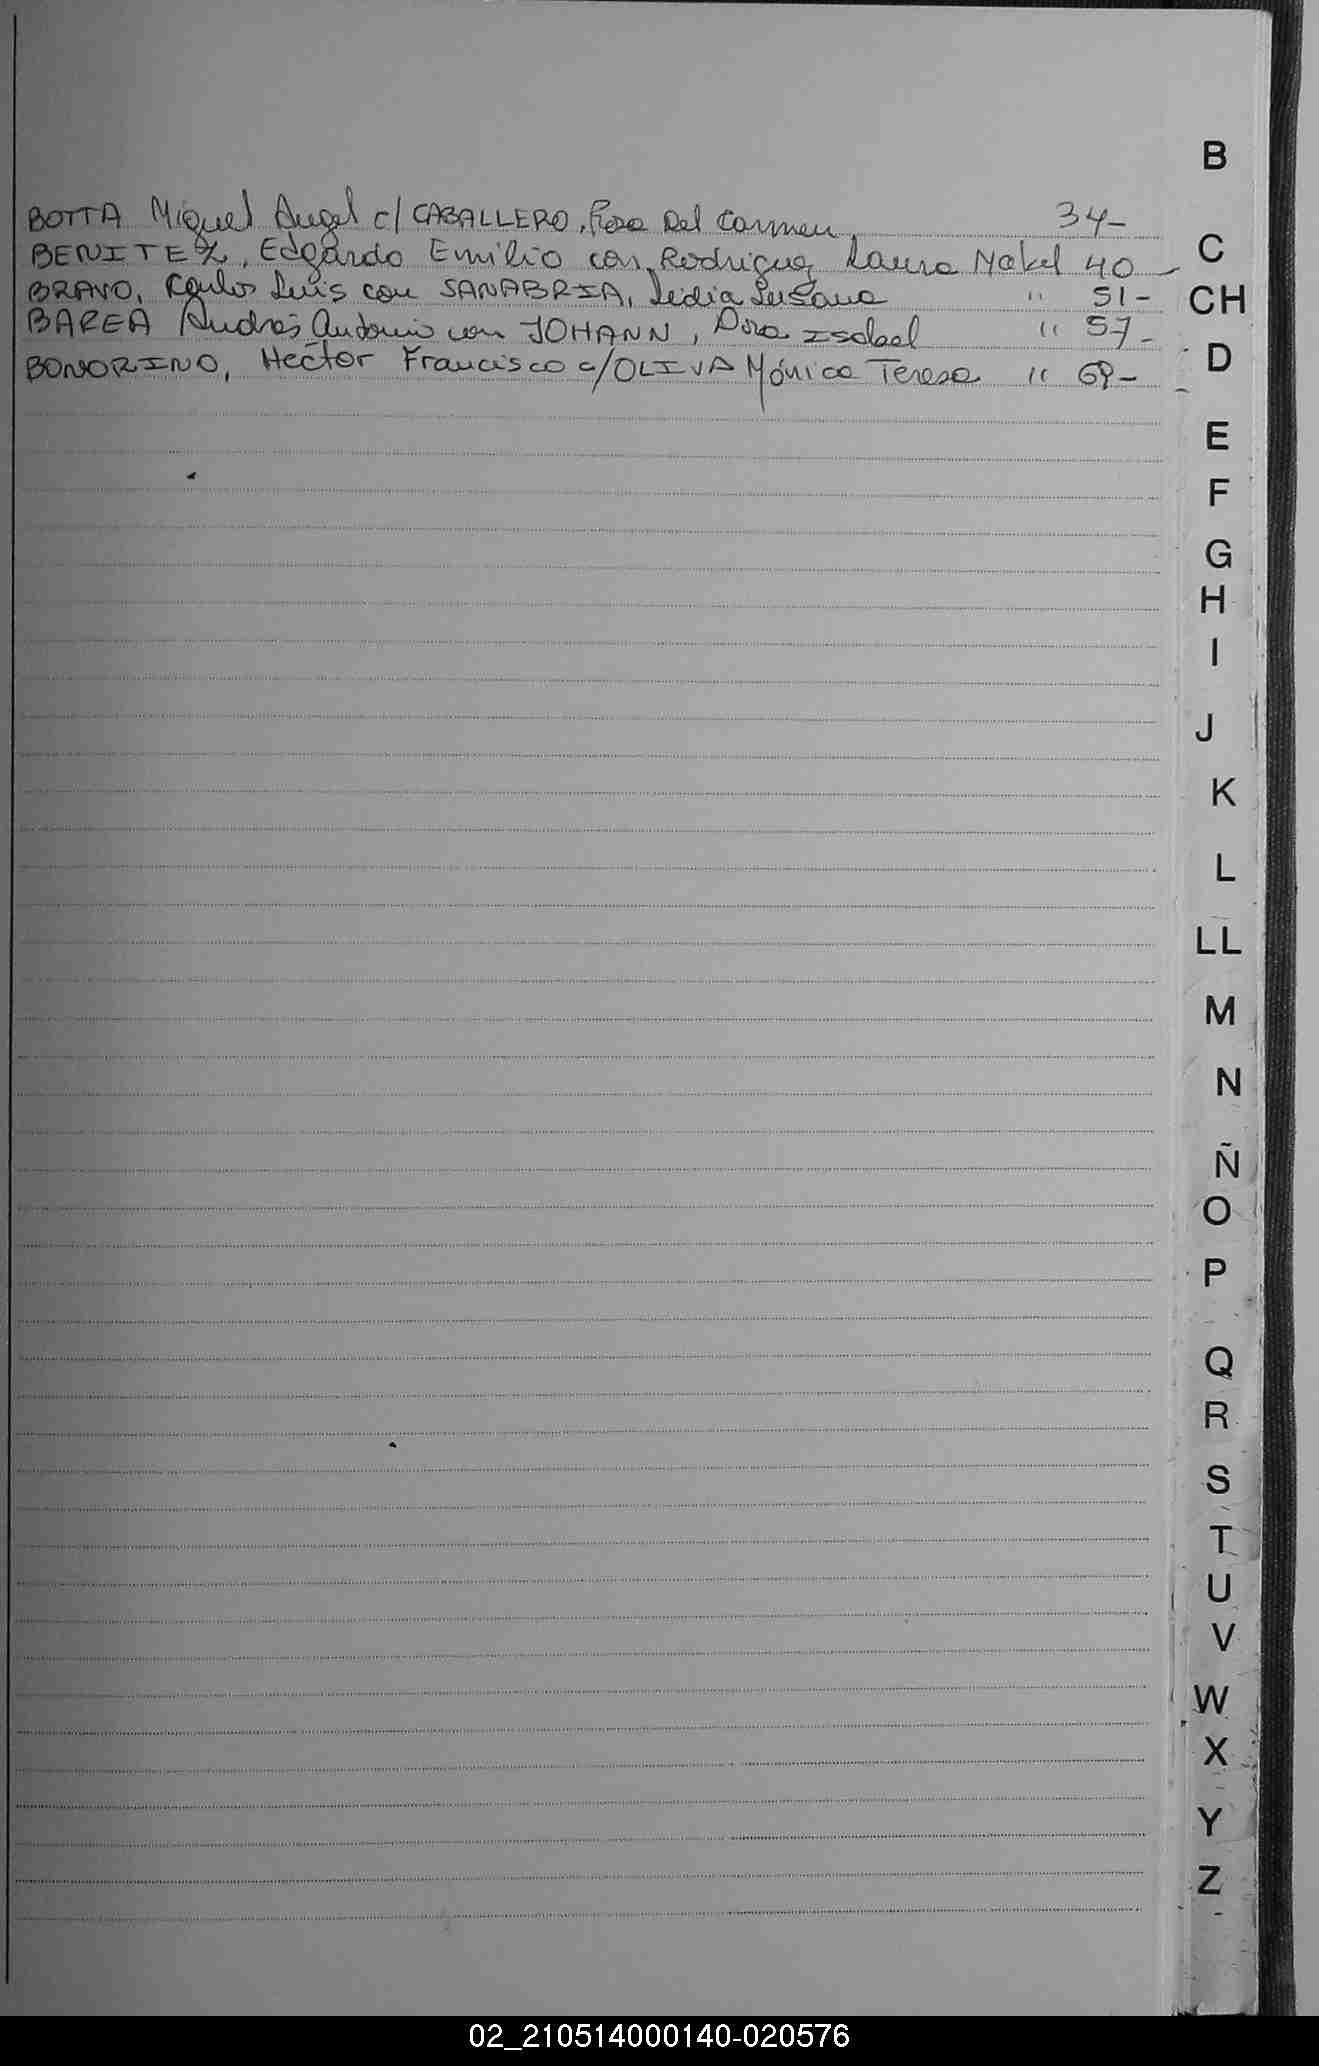 B
BOTTA Miguel Angel c/ CABALLERO, Rosa Del Carmen 34-
BENITEZ, Edgardo Emilio con Rodriguez Laura Mabel 40-
BRAVO, Carlos Luis con SANABRIA, Lidia Susana " 51-
BAREA Andres Antonio con JOHANN, Dora Isabel " 57-
BONORINO, Hector Francisco c/ OLIVA Mónica Teresa " 69-
C
CH
D
E
F
G
H
I
J
K
L
LL
M
N
Ñ
O
P
Q
R
S
T
U
V
W
X
Y
Z
02_210514000140-020576